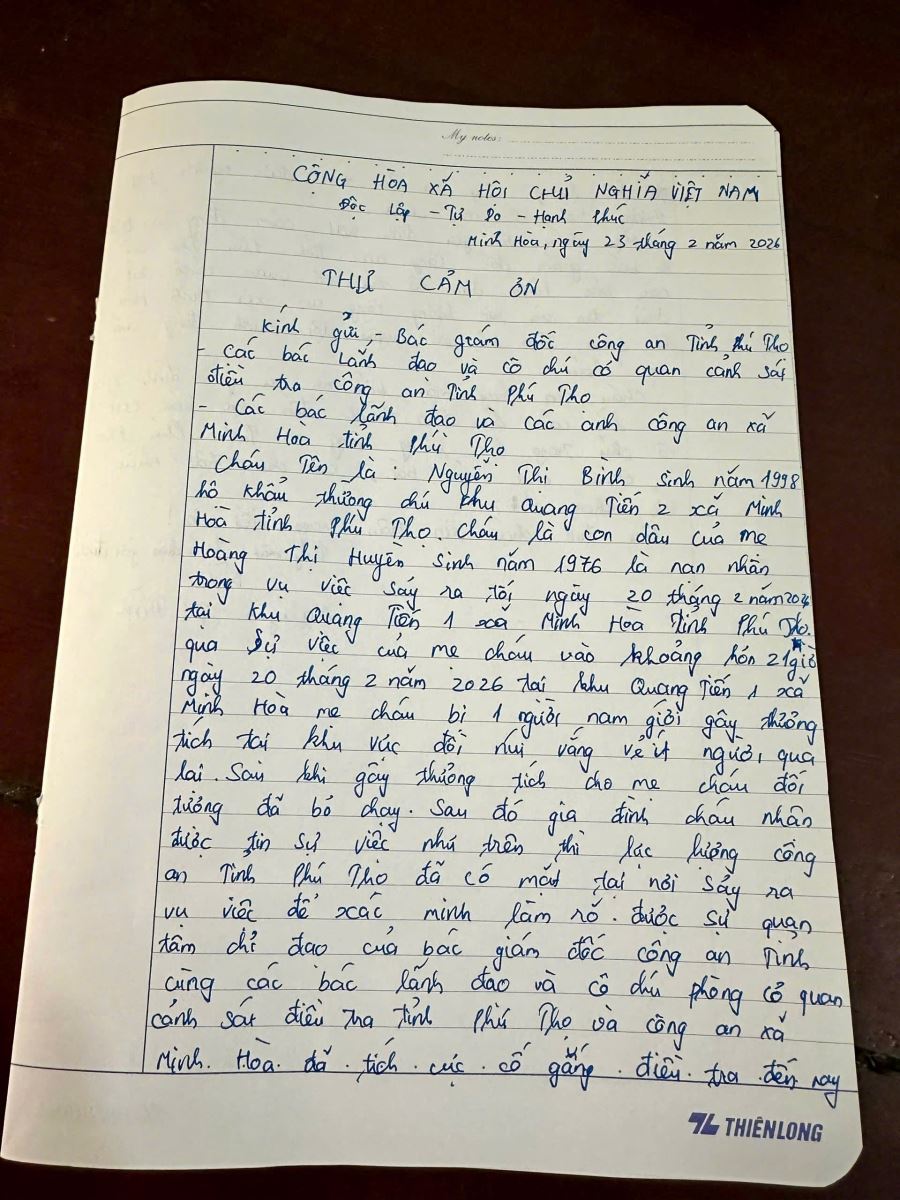 My notes:
CỘNG HÒA XÃ HÔI CHỦ NGHĨA VIỆT NAM
Độc Lập - Tự Do - Hạnh Phúc
Minh Hòa, ngày 23 tháng 2 năm 2026
THƯ CẢM ƠN
Kính gửi, - Bác giám đốc công an Tỉnh Phú Thọ
- Các bác Lãnh đạo và cô chú cơ quan cảnh sát
điều tra công an Tỉnh Phú Thọ
- Các bác lãnh đạo và các anh công an xã
Minh Hoà tỉnh Phú Thọ
Cháu Tên là : Nguyễn Thị Bình Sinh năm 1998
hộ khẩu thường chú khu Quang Tiến 2 xã Minh
Hoà tỉnh Phú Thọ. Cháu là con dâu của mẹ
Hoàng Thị Huyền Sinh năm 1976 là nạn nhân
trong vụ việc sảy ra tối ngày 20 tháng 2 năm 2026
tại khu Quang Tiến 1 xã Minh Hòa Tỉnh Phú Thọ.
qua sự việc của mẹ cháu vào khoảng hơn 21 giờ
ngày 20 tháng 2 năm 2026 tại khu Quang Tiến 1 xã
Minh Hoà mẹ cháu bị 1 người nam giới gây thương
tích tại khu vực đồi núi vắng vẻ ít người qua
lại. Sau khi gây thương tích cho mẹ cháu đối
tượng đã bỏ chạy. Sau đó gia đình cháu nhận
được tin sự việc như trên thì lực lượng công
an Tỉnh Phú Thọ đã có mặt tại nơi sảy ra
vụ việc để xác minh làm rõ. được sự quan
tâm chỉ đạo của bác giám đốc công an Tỉnh
cùng các bác lãnh đạo và cô chú phòng cơ quan
cảnh sát điều tra tỉnh Phú Thọ và công an xã
Minh Hòa đã tích cực cố gắng điều tra đến nay
THIÊN LONG